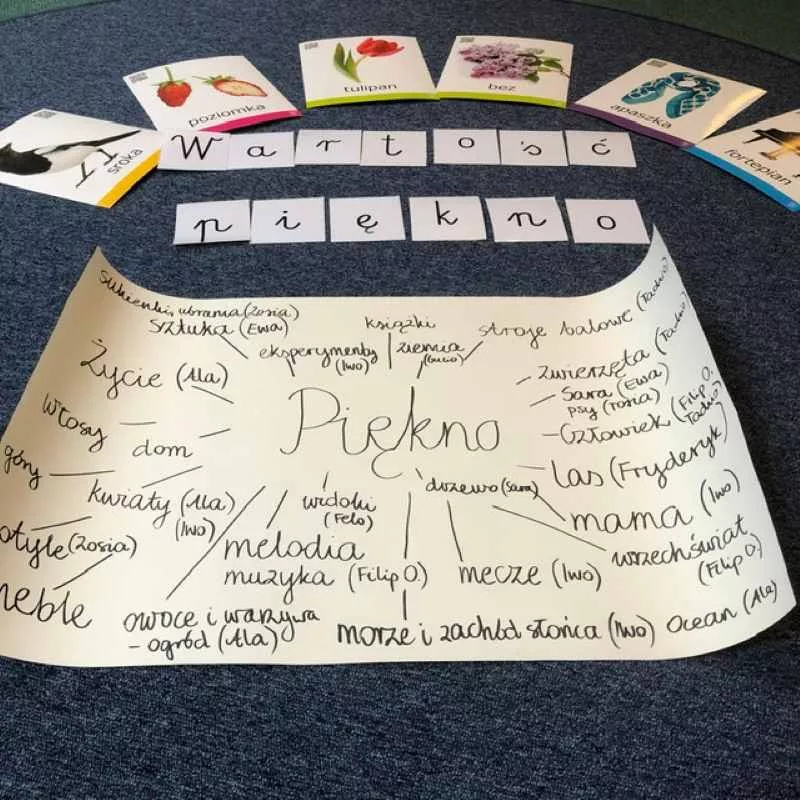 sroka
poziomka
tulipan
bez
apaszka
fortepian
Wartość
piękno
sukienki, ubrania (Zosia)
sztuka (Ewa)
eksperymenty
(Iwo)
książki
ziemia
stroje balowe (Tadzio)
Życie (Ala)
zwierzęta (Tadzio)
Sara (Ewa)
psy (Tosia)
włosy
dom
Piękno
Człowiek (Filip O.
Tadzio)
góry
kwiaty (Ala)
(Iwo)
widoki
(Felo)
drzewo (Sara)
las (Fryderyk)
mama (Iwo)
otyle (Zosia)
melodia
muzyka (Filip O.)
mecze (Iwo)
wrzechświat
(Filip O.)
meble
owoce i warzywa
- ogród (Ala)
morze i zachód słońca (Iwo)
Ocean (Ala)